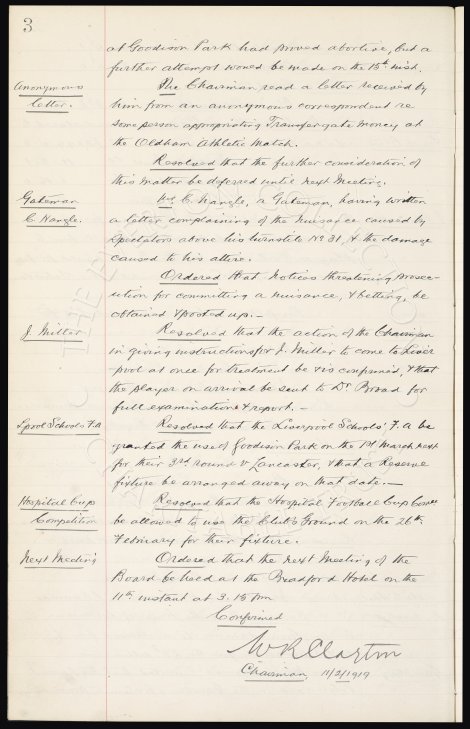 3
at Goodison Park had proved abortive, but a
further attempt would be made on the 15th inst.
Anonymous
letter.
The Chairman read a letter received by
him from an anonymous correspondent re
some person appropriating Transfer gate money at
the Oldham Athletic Match.
Resolved that the further consideration of
this matter be deferred until next Meeting.
Gateman
C. Nangle.
C. Nangle, a Gateman, having written
a letter complaining of the nuisance caused by
spectators above his turnstile No 31, & the damage
caused to his attire.
Ordered that notices threatening prose-
cution for committing a nuisance, & betting, be
obtained & posted up. -
J. Miller
Resolved that the action of the Chairman
in giving instructions for J. Miller to come to Liver-
pool at once for treatment be & is confirmed, & that
the player on arrival be sent to Dr Broad for
full examination & report. -
Lpool Schools F.A
Resolved that the Liverpool Schools' F.A be
granted the use of Goodison Park on the 1st March next
for their 3rd round v Lancaster, & that a Reserve
fixture be arranged away on that date. -
Hospital Cup
Competition
Resolved that the Hospital Football Cup Comee
be allowed to use the Club's Ground on the 26th
February for their fixture.
Next Meeting
Ordered that the next Meeting of the
Board be held at the Bradford Hotel on the
11th instant at 3.15 pm
Confirmed
W R Clayton
Chairman 11/2/1919